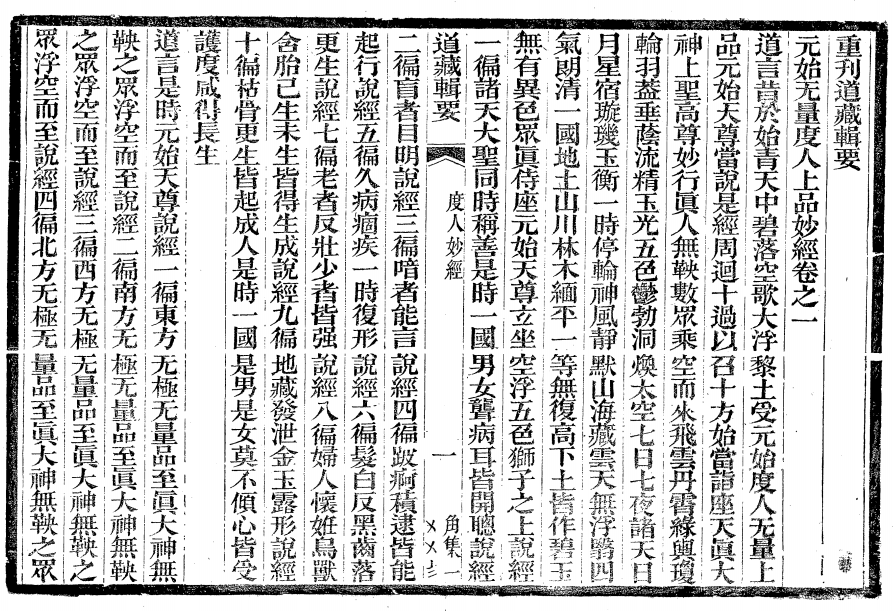 重刊道藏輯要
元始无量度人上品妙經卷之一
道言昔於始青天中碧落空歌大浮黎土受元始度人无量上
品元始天尊當說是經周迴十過以召十方始當詣座天眞大
神上聖高尊妙行眞人無鞅數眾乘空而來飛雲丹霄綠輿瓊
輪羽蓋垂蔭流精玉光五色鬱勃洞煥太空七日七夜諸天日
月星宿璇璣玉衡一時停輪神風靜默山海藏雲天無浮翳四
氣朗清一國地土山川林木緬平一等無復高下土皆作碧玉
無有異色眾眞侍座元始天尊立坐空浮五色獅子之上說經
一徧諸天大聖同時稱善是時一國男女聾病耳皆開聰說經
道藏輯要
度人妙經
一
角集一
二徧盲者目明說經三徧喑者能言說經四徧跛痾積逮皆能
起行說經五徧久病痼疾一時復形說經六徧髮白反黑齒落
更生說經七徧老者反壯少者皆强說經八徧婦人懷姙鳥獸
含胎已生未生皆得生成說經九徧地藏發泄金玉露形說經
十徧枯骨更生皆起成人是時一國是男是女莫不傾心皆受
護度咸得長生
道言是時元始天尊說經一徧東方无極无量品至眞大神無
鞅之眾浮空而至說經二徧南方无極无量品至眞大神無鞅
之眾浮空而至說經三徧西方无極无量品至眞大神無鞅之
眾浮空而至說經四徧北方无極无量品至眞大神無鞅之眾